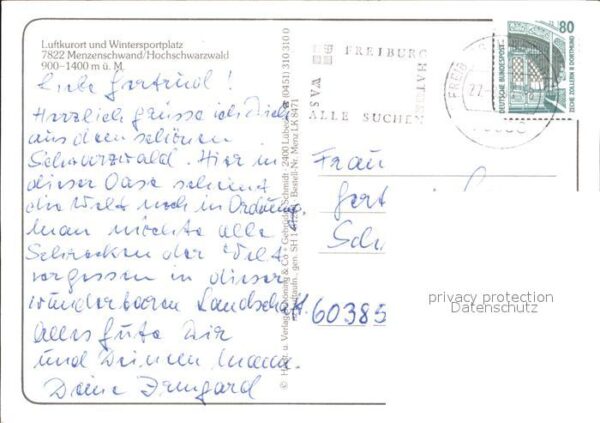 Luftkurort und Wintersportplatz
7822 Menzenschwand/Hochschwarzwald
900–1400 m ü. M.
Liebe Gertrud!
Herzlich grüsse ich Dich
aus dem schönen
Schwarzwald. Hier in
dieser Oase scheint
die Welt noch in Ordnung.
Man möchte alle
Schrecken der Welt
vergessen in dieser
wunderbaren Landschaft.
Alles Gute Dir
und Deinem Mann.
Deine Irmgard
© Schöning & Co + Gebrüder Schmidt · 2400 Lübeck (0451) 310 310 0
Bestell-Nr. Menz LK 8471
FREIBURG
HAT
WAS
ALLE SUCHEN
FREIB
80
DEUTSCHE BUNDESPOST
ZECHE ZOLLERN II DORTMUND
Frau
Gert
Sch
60385
privacy protection
Datenschutz